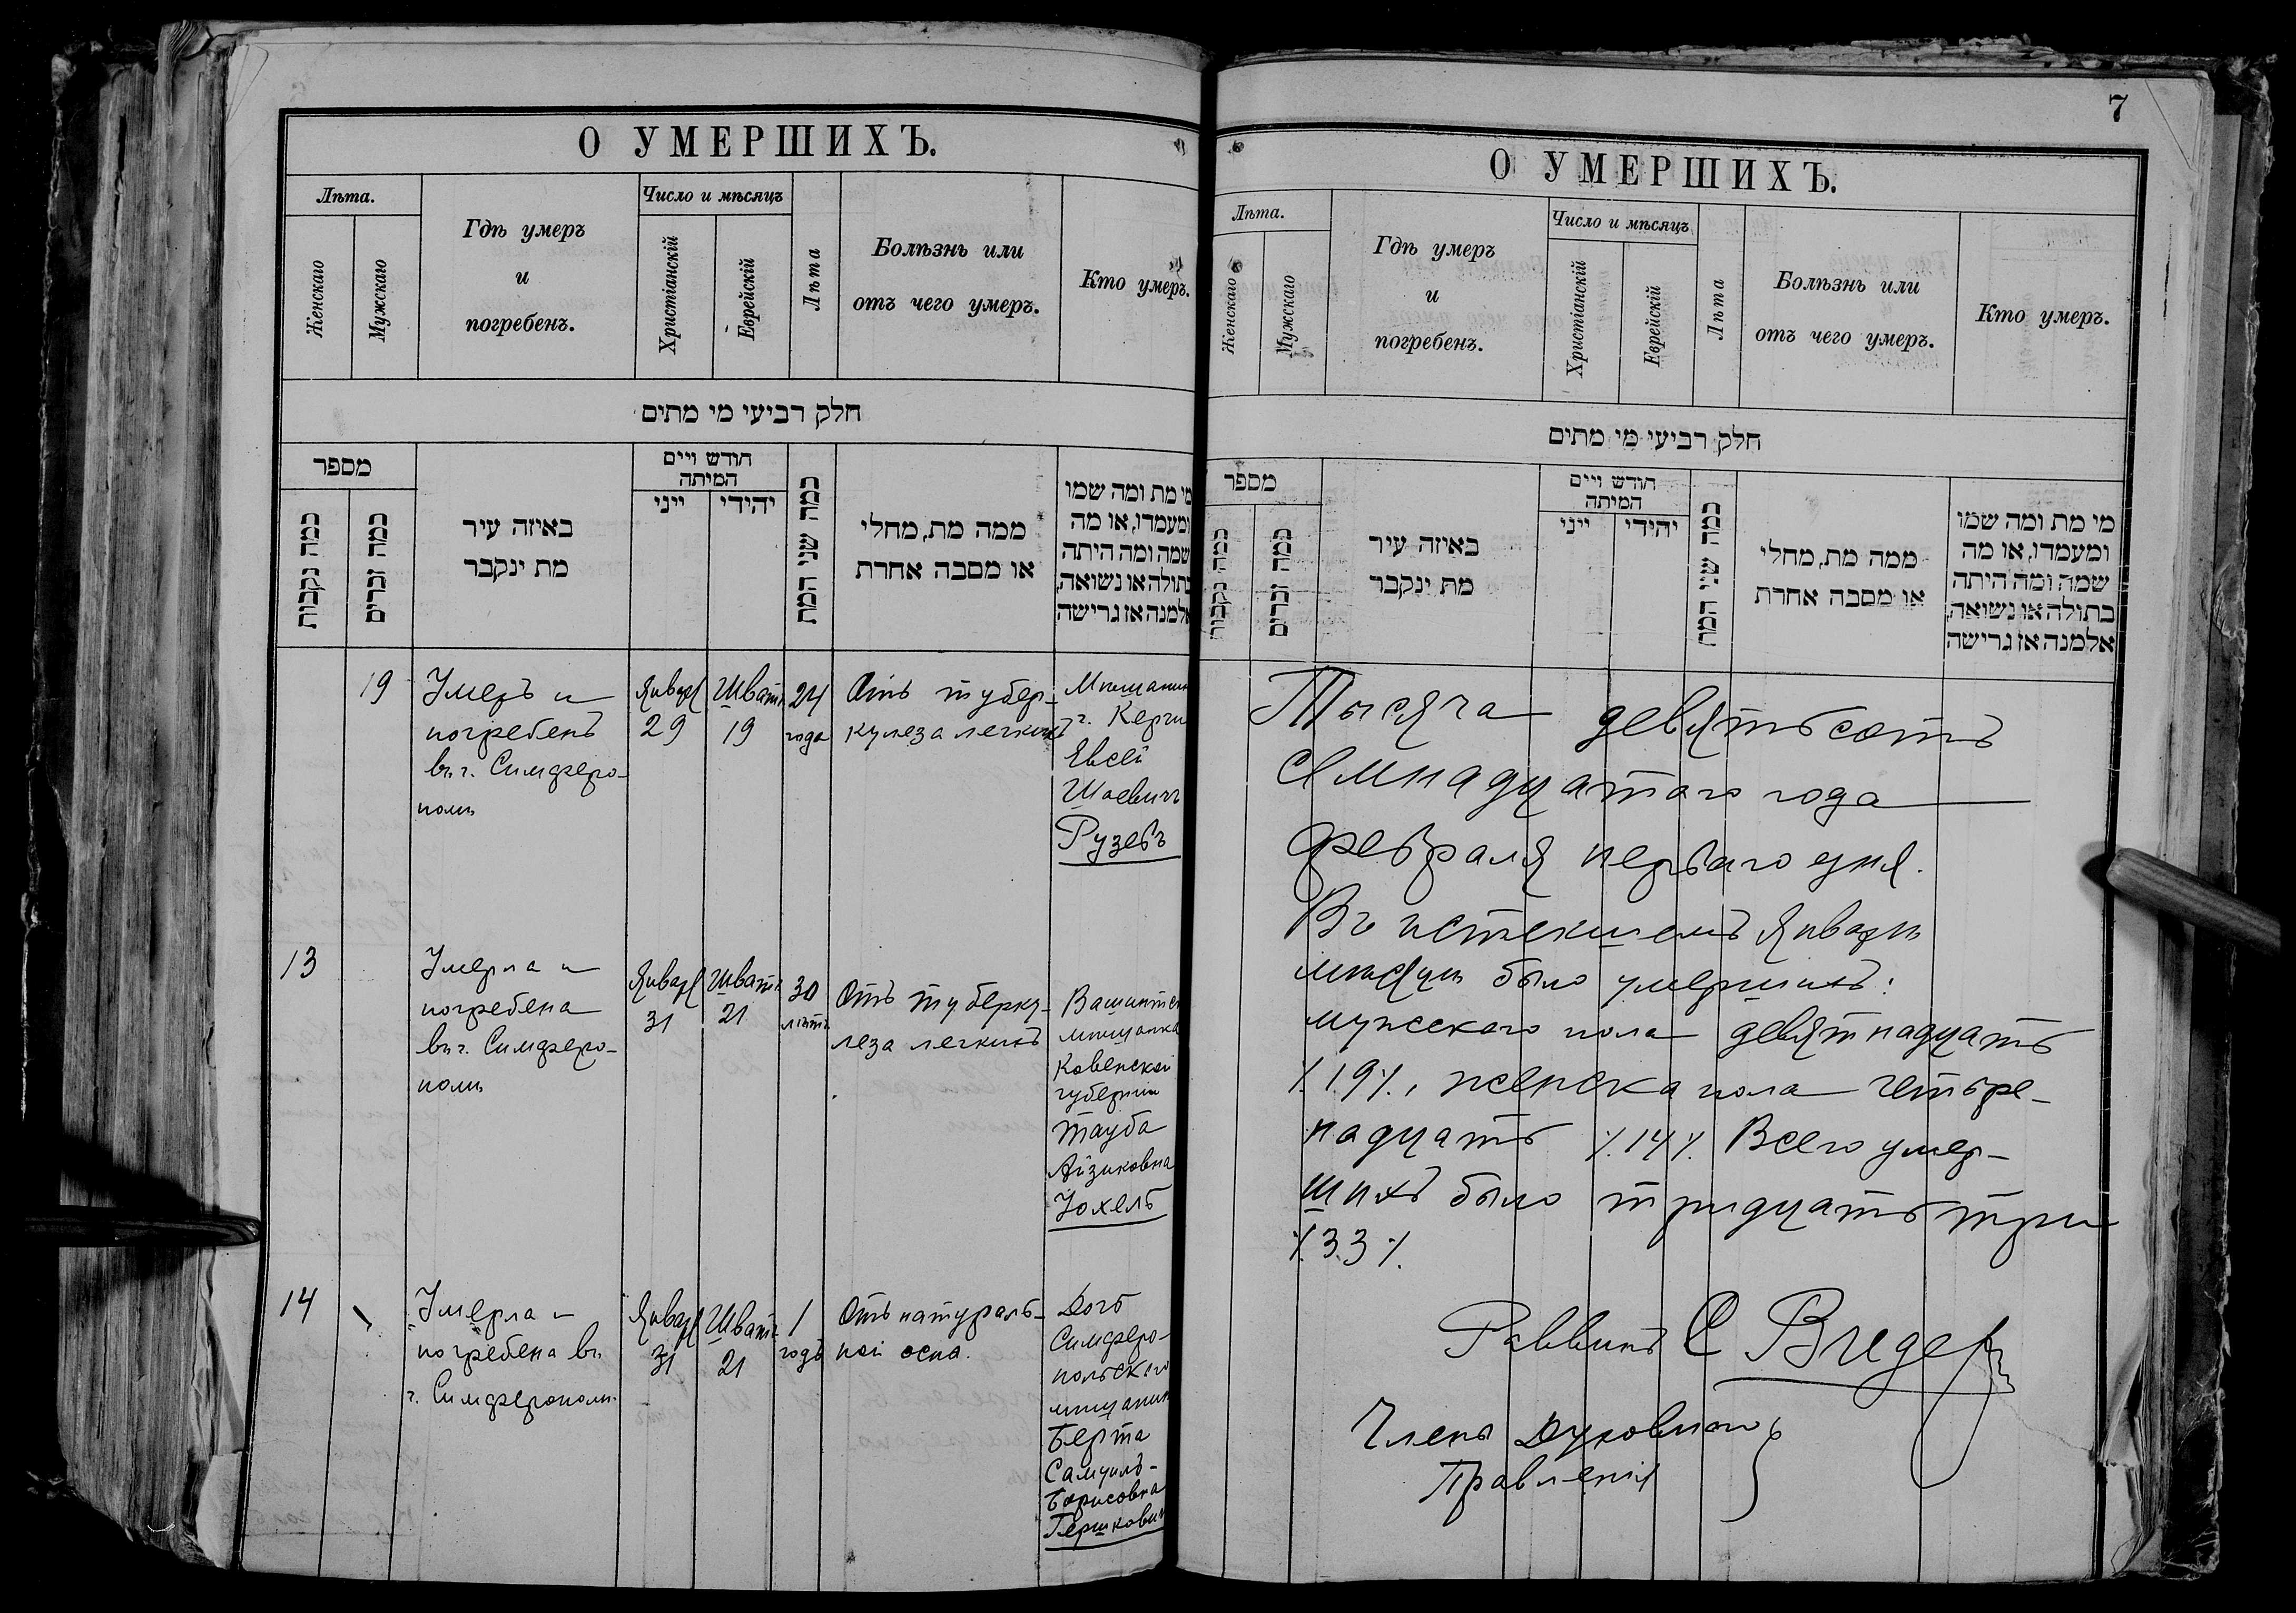 О УМЕРШИХЪ.
Лѣта.
Женскаго
Мужскаго
Гдѣ умеръ
и
погребенъ.
Число и мѣсяцъ
Христіанскій
Еврейскій
Лѣта
Болѣзнь или
отъ чего умеръ.
Кто умеръ.
חלק רביעי מי מתים
מספר
כמה נקבות
כמה זכרים
באיזה עיר
מת ינקבר
חודש ויים
המיתה
ייני
יהידי
כמה שני המת
ממה מת, מחלי
או מסבה אחרת
מי מת ומה שמו
ומעמדו, או מה
שמה ומה היתה
בתולה או נשואה,
אלמנה אז גרישה
19
Умеръ и
погребенъ
въ г. Симферо-
полѣ
Январ
29
Шватъ
19
24
года
Отъ тубер-
кулеза легкихъ
Мѣщанин
г. Керчи
Евсей
Шаевичъ
Рузевъ
13
Умерла и
погребена
въ г. Симферо-
полѣ
Январ
31
Шватъ
21
30
лѣтъ
Отъ туберку-
леза легкихъ
мѣщанка
Ковенской
губерніи
Тауба
Айзиковна
Іохель
14
Умерла и
погребена въ
г. Симферополѣ.
Январ
31
Шватъ
21
1
годъ
Отъ натураль-
ной оспы.
Дочь
Симферо-
польскаго
мѣщанин
Берта
Самуилъ-
Борисовна
Гершкович
7
О УМЕРШИХЪ.
Лѣта.
Женскаго
Мужскаго
Гдѣ умеръ
и
погребенъ.
Число и мѣсяцъ
Христіанскій
Еврейскій
Лѣта
Болѣзнь или
отъ чего умеръ.
Кто умеръ.
חלק רביעי מי מתים
מספר
כמה נקבות
כמה זכרים
באיזה עיר
מת ינקבר
חודש ויים
המיתה
ייני
יהידי
כמה שני המת
ממה מת, מחלי
או מסבה אחרת
מי מת ומה שמו
ומעמדו, או מה
שמה ומה היתה
בתולה או נשואה,
אלמנה אז גרישה
Тысяча девятьсотъ
семнадцатого года
февраля перваго дня.
Въ истекшемъ Январѣ
мѣсяцѣ было умершихъ:
мужскаго пола девятнадцать
٪19٪, женска пола четыре-
надцать ٪14٪ Всего умер-
шихъ было тридцать три
٪33٪.
Раввинъ С Бридер
Члены Духовнаго
Правленія